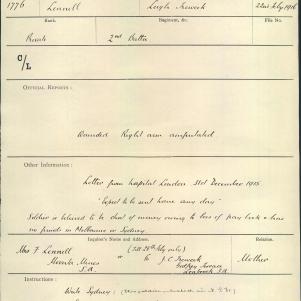 1776 Lennell Leigh Treweek 22nd July 1916
Rank Regiment, &c. File No
Private 2nd Battn
C/L
OFFICIAL REPORTS :
Wounded Right arm amputated
Other Information :
Letter from hospital London 31st December 1915
"Expect to be sent home any day"
Soldier is believed to be short of money owing to loss of pay book & has
no friends in Melbourne or Sydney.
Inquirer's Name and Address. Relation.
Mrs F. Lennell (Till 29th July only)
Moonta Mines to J. C. Treweek Mother
S.A. Godfrey Terrace
Leabrook S.A
Instructions :
Write Sydney :